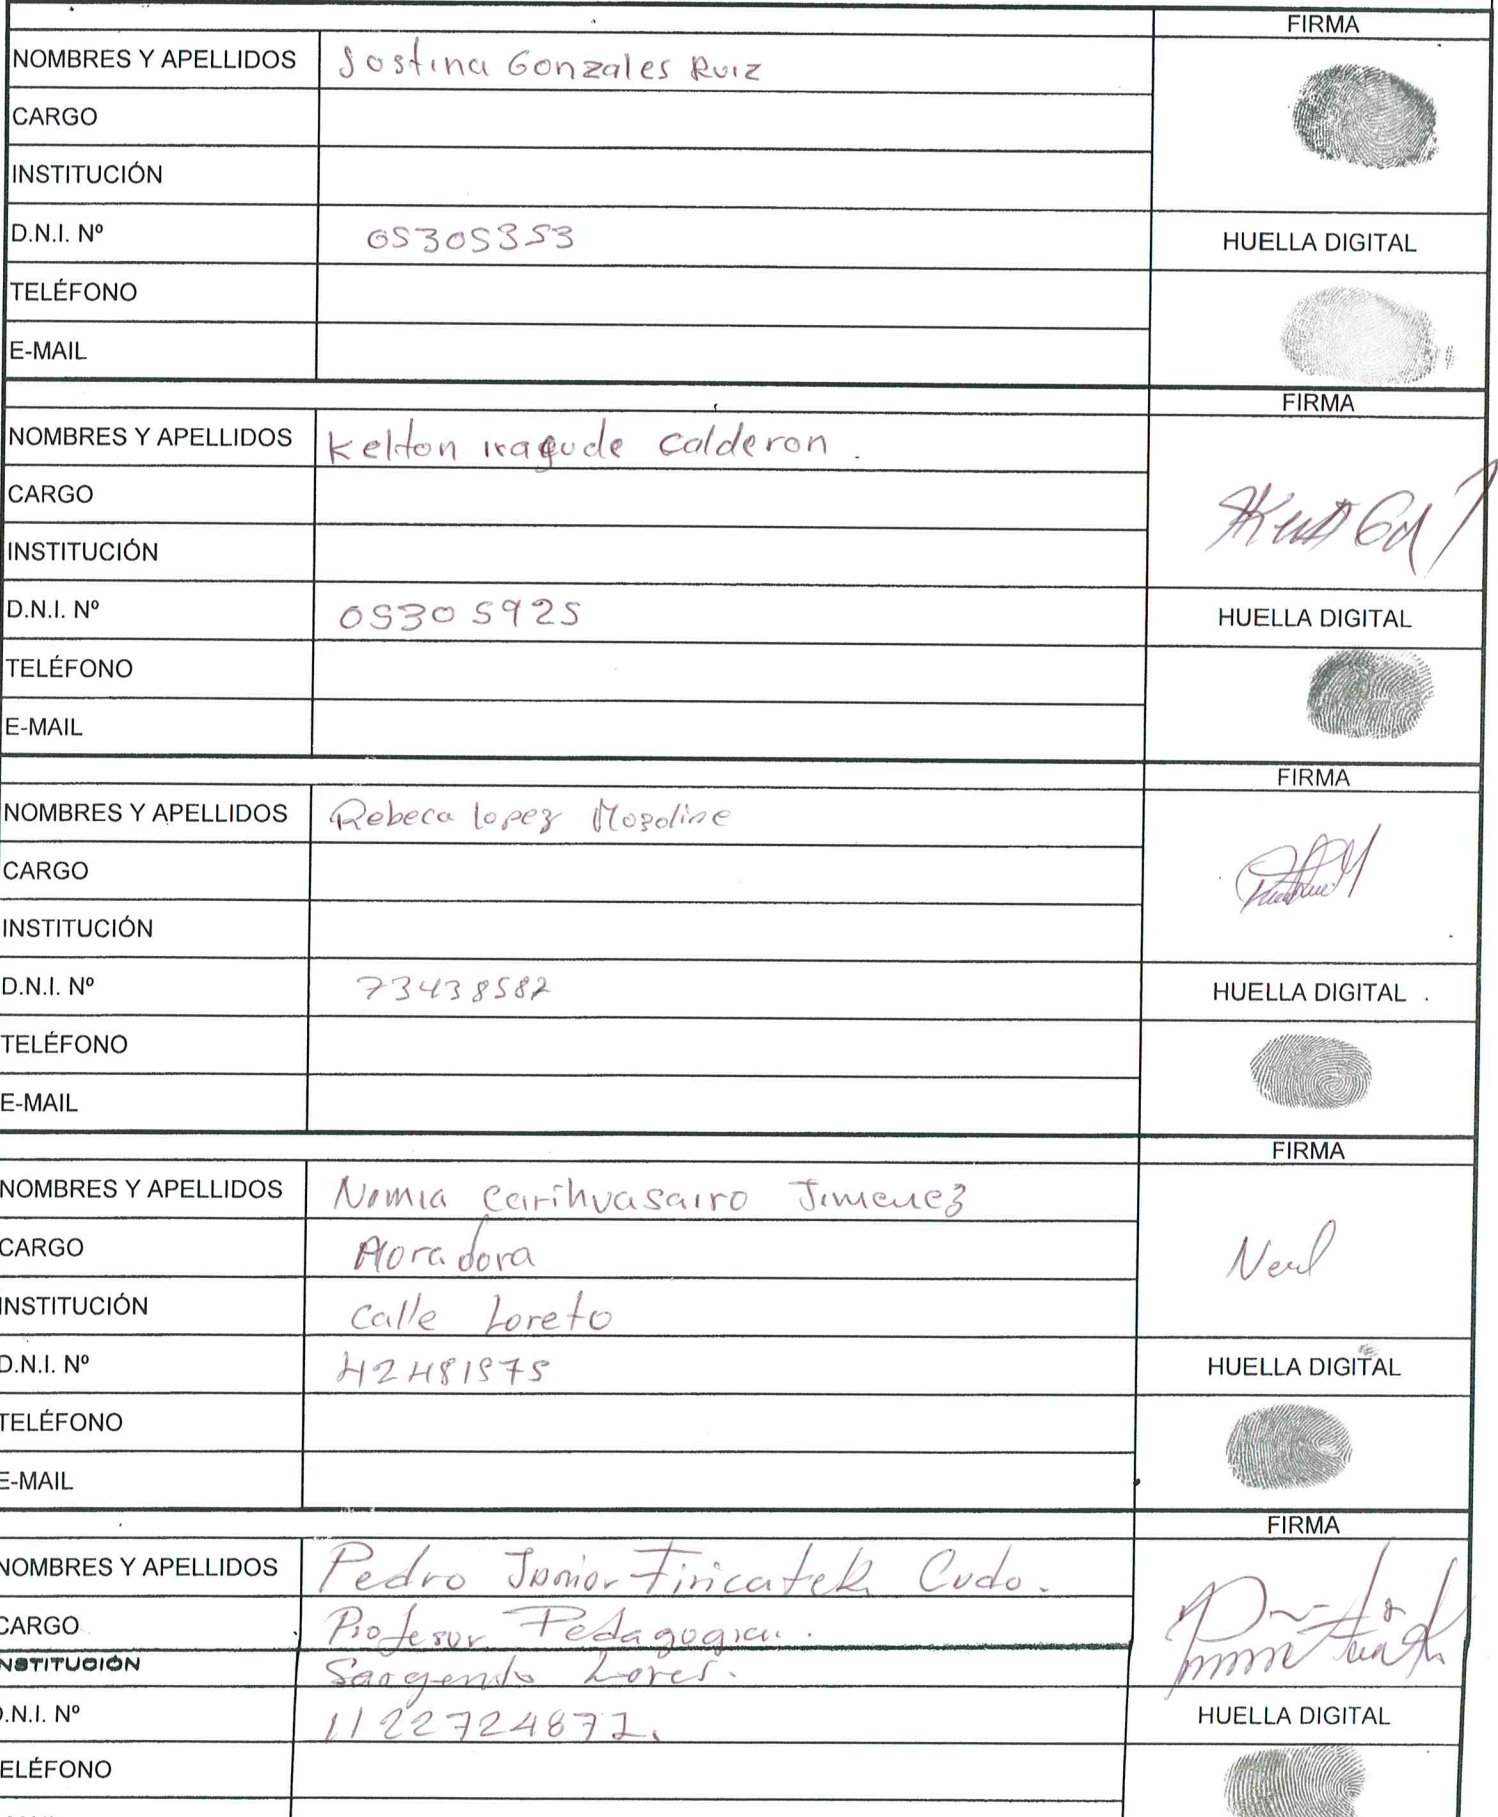 FIRMA
NOMBRES Y APELLIDOS Jostina Gonzales Ruiz
CARGO
INSTITUCIÓN
D.N.I. Nº 05305353
HUELLA DIGITAL
TELÉFONO
E-MAIL
FIRMA
NOMBRES Y APELLIDOS Kelton calderon.
CARGO
INSTITUCIÓN
D.N.I. Nº 05305925
HUELLA DIGITAL
TELÉFONO
E-MAIL
FIRMA
NOMBRES Y APELLIDOS Rebeca lopez
CARGO
INSTITUCIÓN
D.N.I. Nº 73438582
HUELLA DIGITAL
TELÉFONO
E-MAIL
FIRMA
NOMBRES Y APELLIDOS Nomia Carihuasairo Jimenez
CARGO Moradora
INSTITUCIÓN Calle Loreto
D.N.I. Nº 42481975
HUELLA DIGITAL
TELÉFONO
E-MAIL
FIRMA
NOMBRES Y APELLIDOS Pedro Junior Cudo.
CARGO Profesor Pedagogia.
INSTITUCIÓN Sargento Lores.
D.N.I. Nº
HUELLA DIGITAL
TELÉFONO